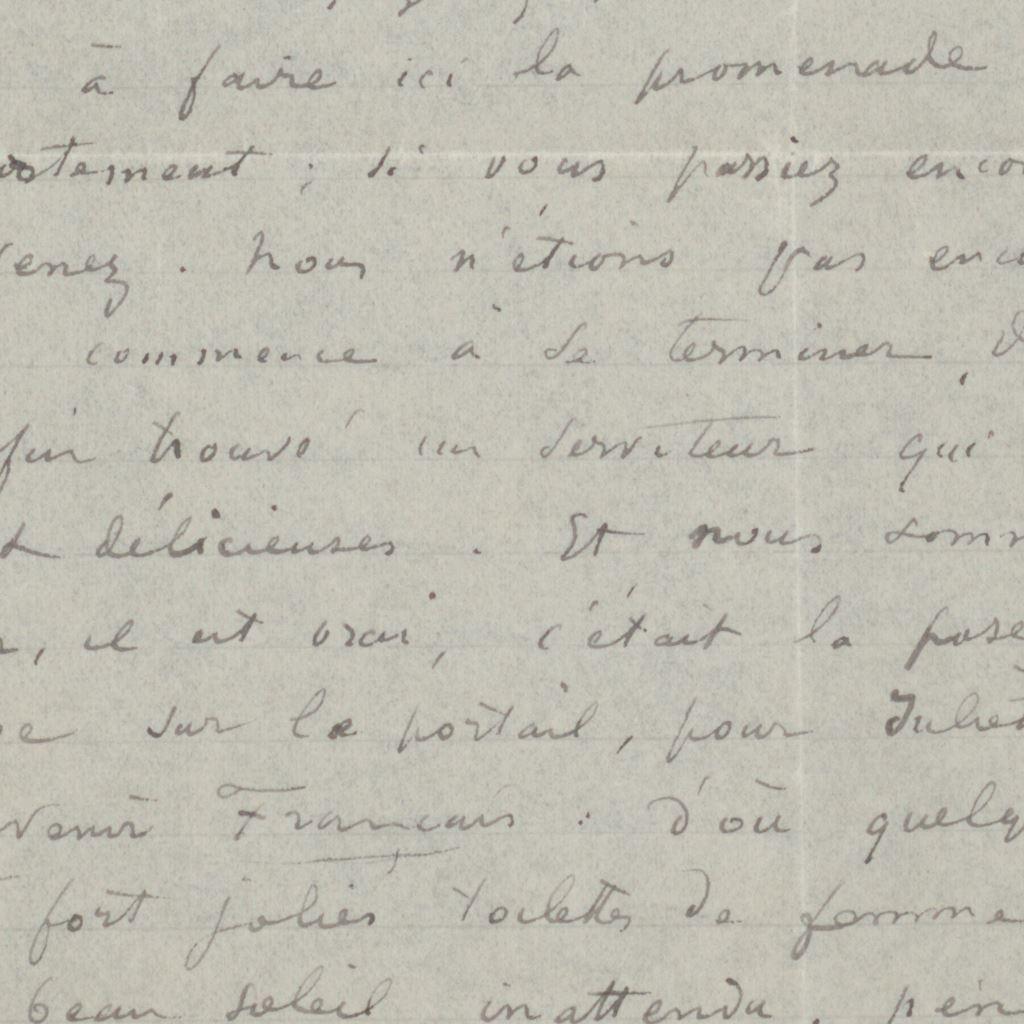 à faire ici la promenade
ostement ; si vous passiez enco
venez . Nous n'étions pas enco
commence à se terminer
fin trouvé un serviteur qui
délicieuses . Et nous somm
, il est vrai, c'était la pose
sur le portail, pour Juliet
venir Français : d'où quelq
fort jolies toilettes de femme
beau soleil inattendu , pen